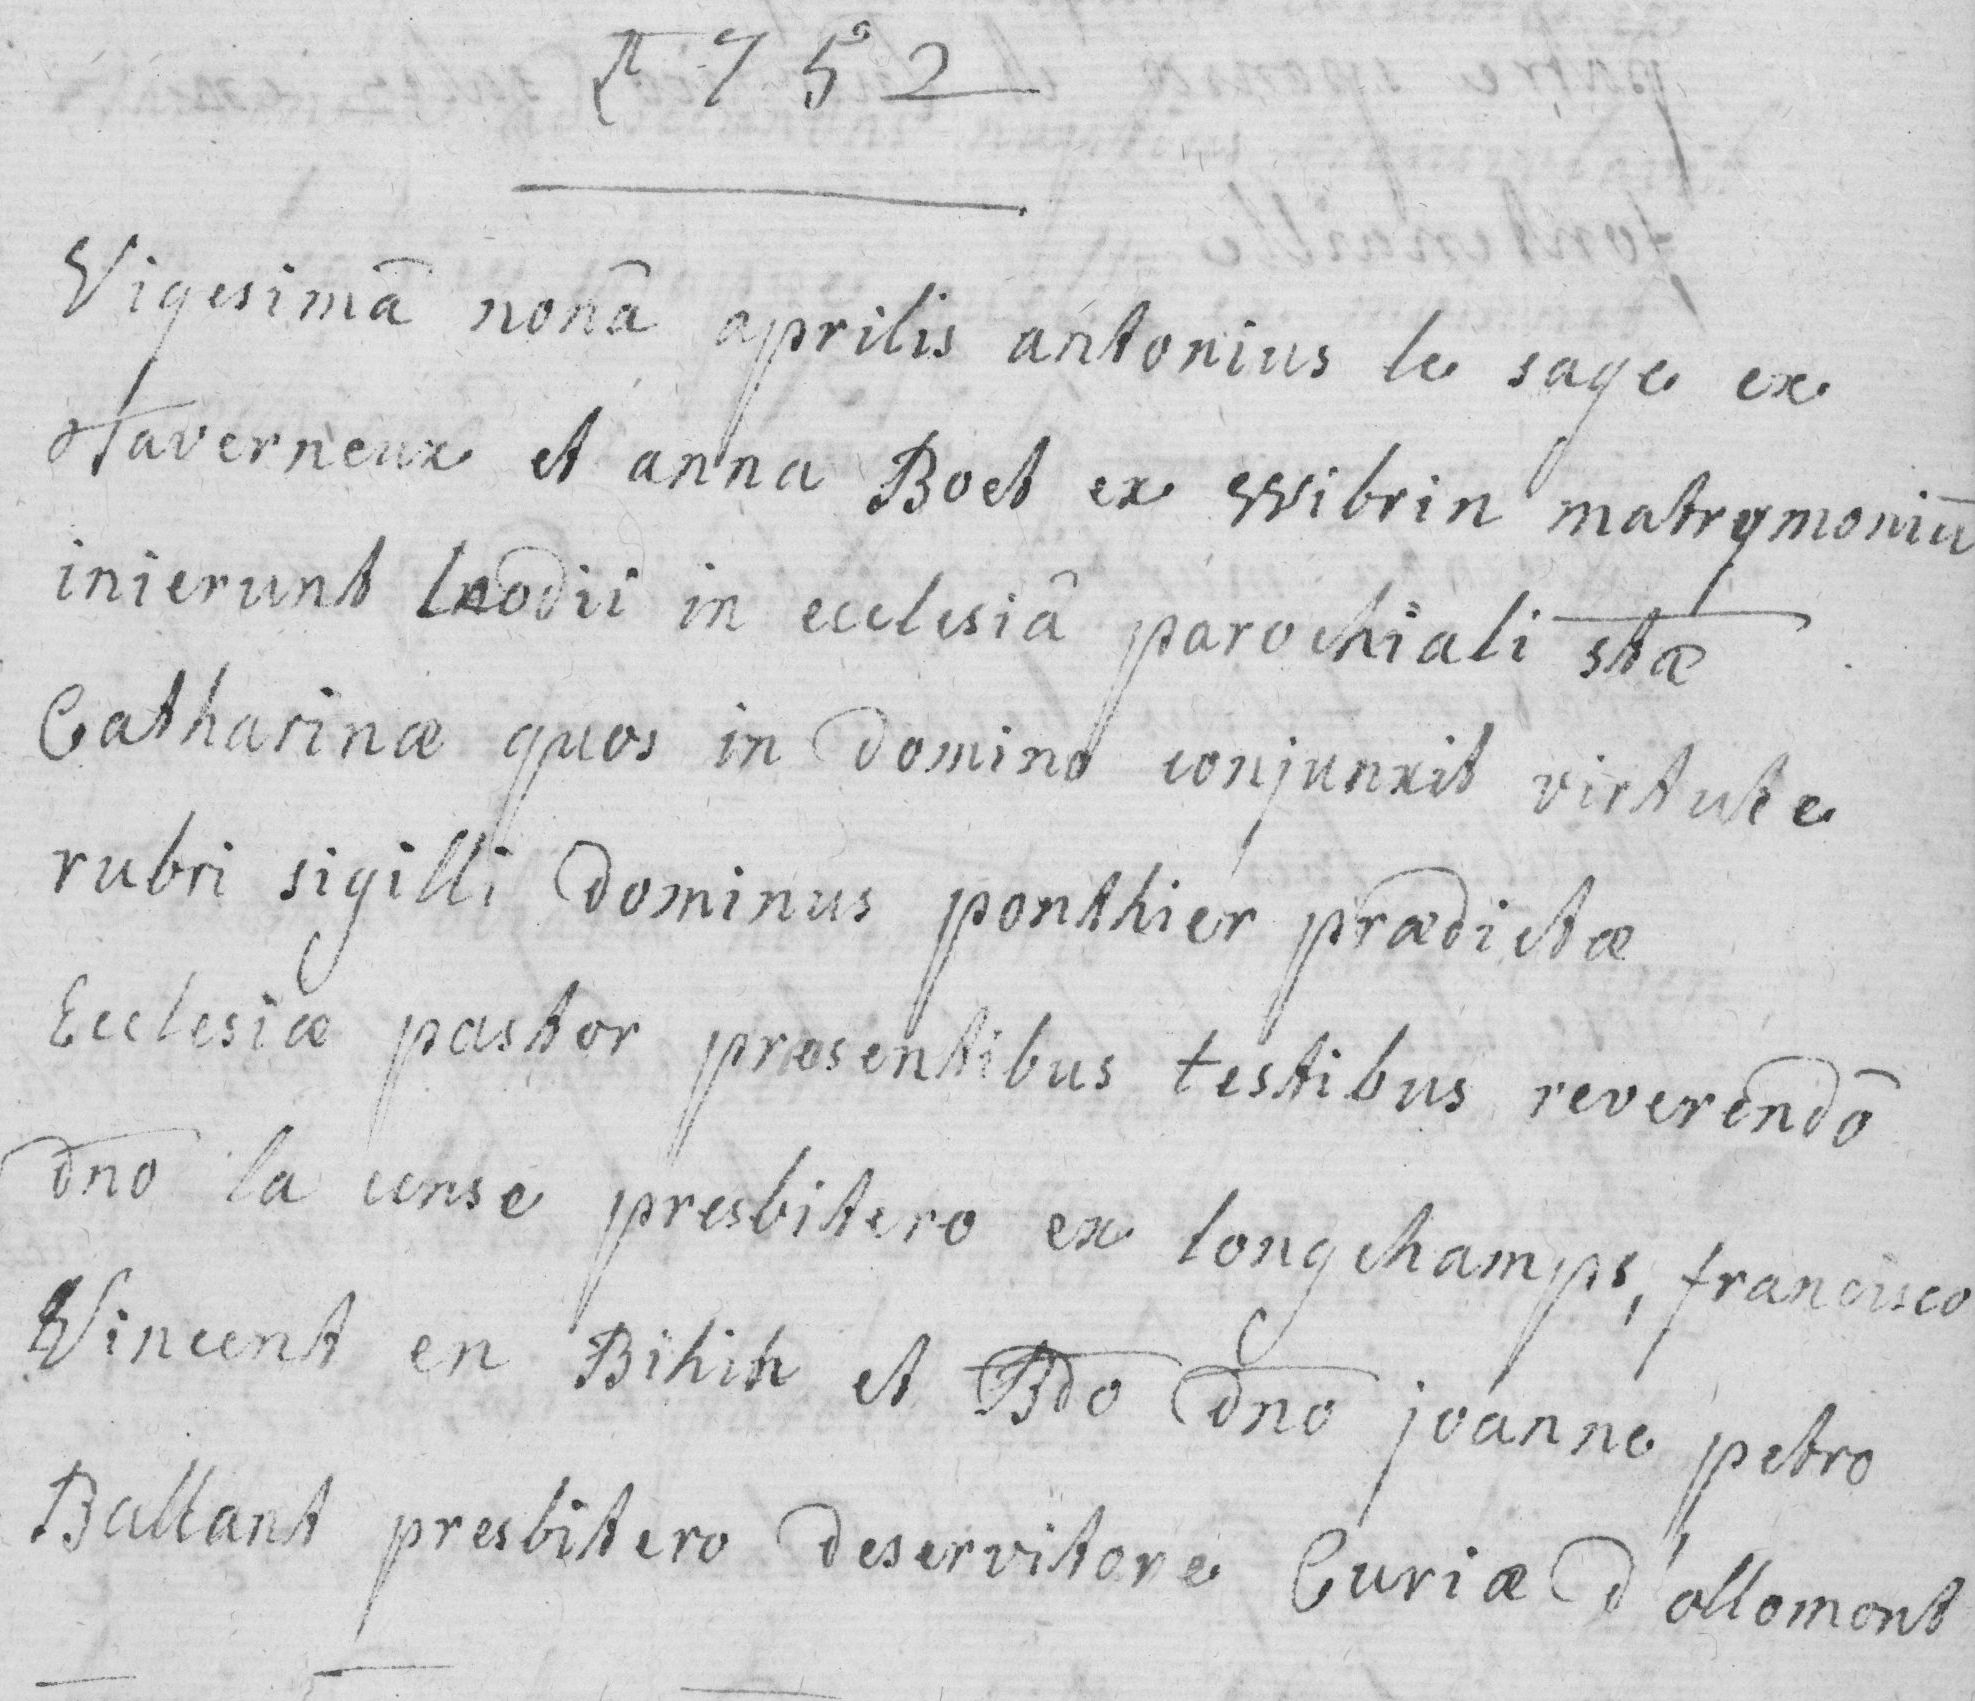 1752
Vigesimâ nonâ aprilis antonius le sage ex
taverneux et anna Boet ex Wibrin matrymoniū
inierunt leodii in ecclesiâ parochiali stæ
Catharinæ quos in domino conjunxit virtute
rubri sigilli dominus ponthier prædictæ
Ecclesiæ pastor præsentibus testibus reverendô
dno la cense presbitero ex longchamps, francisco
Vincent en Bihih et Rdo dno joanne petro
Ballant presbitero deservitore Curiæ d'ollomont